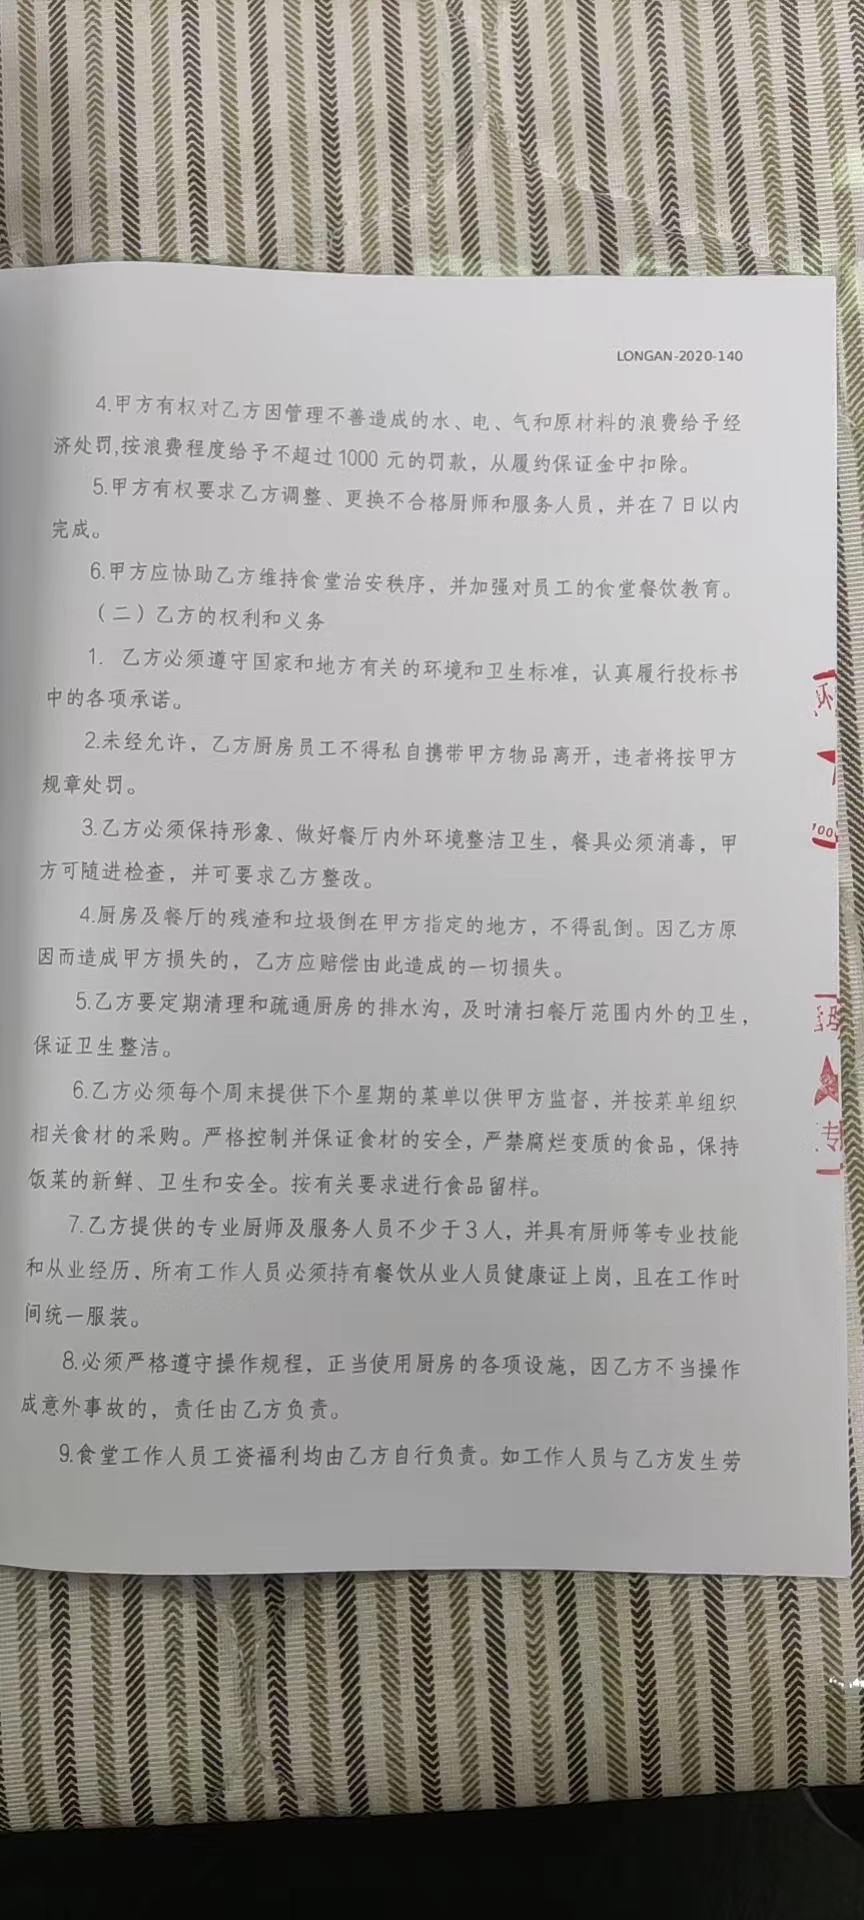 LONGAN-2020-140
4.甲方有权对乙方因管理不善造成的水、电、气和原材料的浪费给予经
济处罚,按浪费程度给予不超过1000元的罚款，从履约保证金中扣除。
5.甲方有权要求乙方调整、更换不合格厨师和服务人员，并在7日以内
完成。
6.甲方应协助乙方维持食堂治安秩序，并加强对员工的食堂餐饮教育。
（二）乙方的权利和义务
1. 乙方必须遵守国家和地方有关的环境和卫生标准，认真履行投标书
中的各项承诺。
2.未经允许，乙方厨房员工不得私自携带甲方物品离开，违者将按甲方
规章处罚。
3.乙方必须保持形象、做好餐厅内外环境整洁卫生，餐具必须消毒，甲
方可随进检查，并可要求乙方整改。
4.厨房及餐厅的残渣和垃圾倒在甲方指定的地方，不得乱倒。因乙方原
因而造成甲方损失的，乙方应赔偿由此造成的一切损失。
5.乙方要定期清理和疏通厨房的排水沟，及时清扫餐厅范围内外的卫生，
保证卫生整洁。
6.乙方必须每个周末提供下个星期的菜单以供甲方监督，并按菜单组织
相关食材的采购。严格控制并保证食材的安全，严禁腐烂变质的食品，保持
饭菜的新鲜、卫生和安全。按有关要求进行食品留样。
7.乙方提供的专业厨师及服务人员不少于3人，并具有厨师等专业技能
和从业经历，所有工作人员必须持有餐饮从业人员健康证上岗，且在工作时
间统一服装。
8.必须严格遵守操作规程，正当使用厨房的各项设施，因乙方不当操作
成意外事故的，责任由乙方负责。
9.食堂工作人员工资福利均由乙方自行负责。如工作人员与乙方发生劳